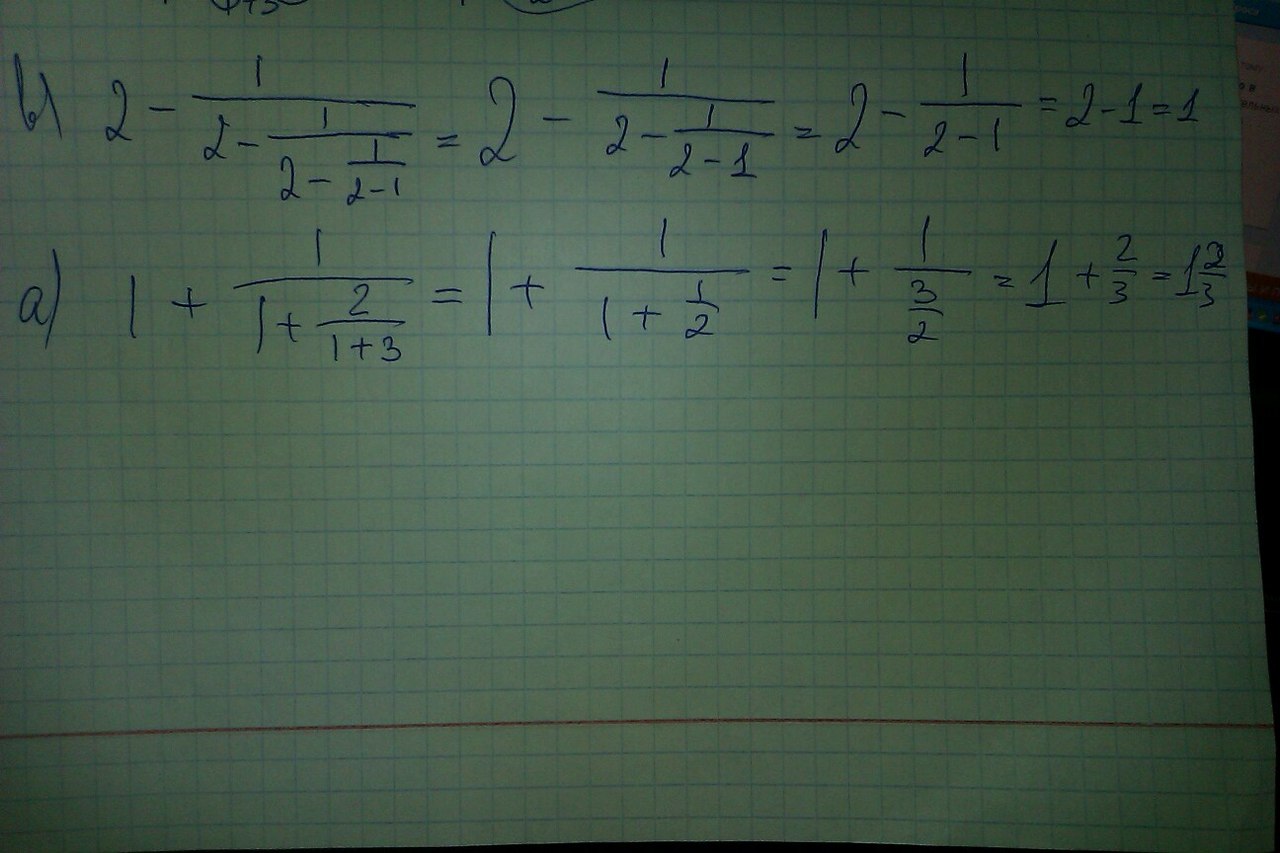 b) 2 - \frac{1}{2 - \frac{1}{2 - \frac{1}{2-1}}} = 2 - \frac{1}{2 - \frac{1}{2-1}} = 2 - \frac{1}{2-1} = 2-1 = 1
a) 1 + \frac{1}{1 + \frac{2}{1+3}} = 1 + \frac{1}{1 + \frac{1}{2}} = 1 + \frac{1}{\frac{3}{2}} = 1 + \frac{2}{3} = 1\frac{2}{3}